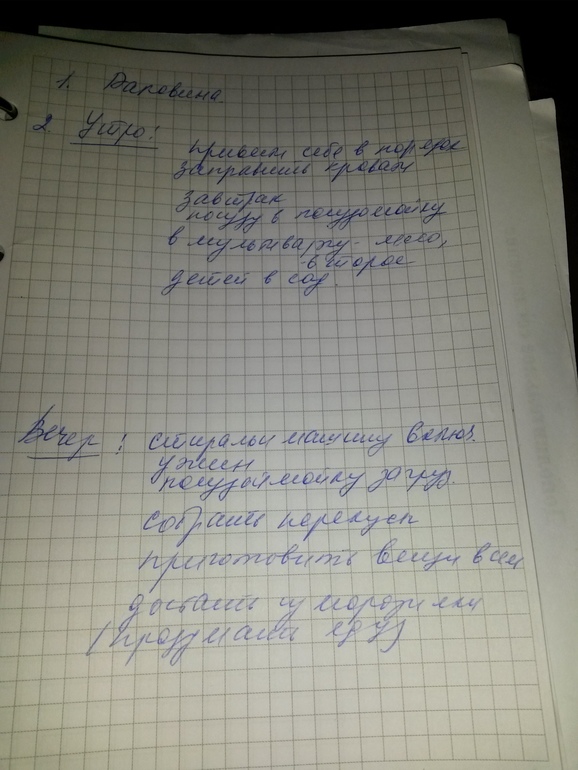 1. Раковина.
2 Утро:
привести себя в порядок
заправить кровать
завтрак
посуду в посудомойку
в мультварку - мясо,
- второе
детей в сад.
Вечер: стиральн машину включ.
ужин
посудомойку загруз.
собрать перекусы
приготовить вещи всем
достать из морозилки
(продумать еду)